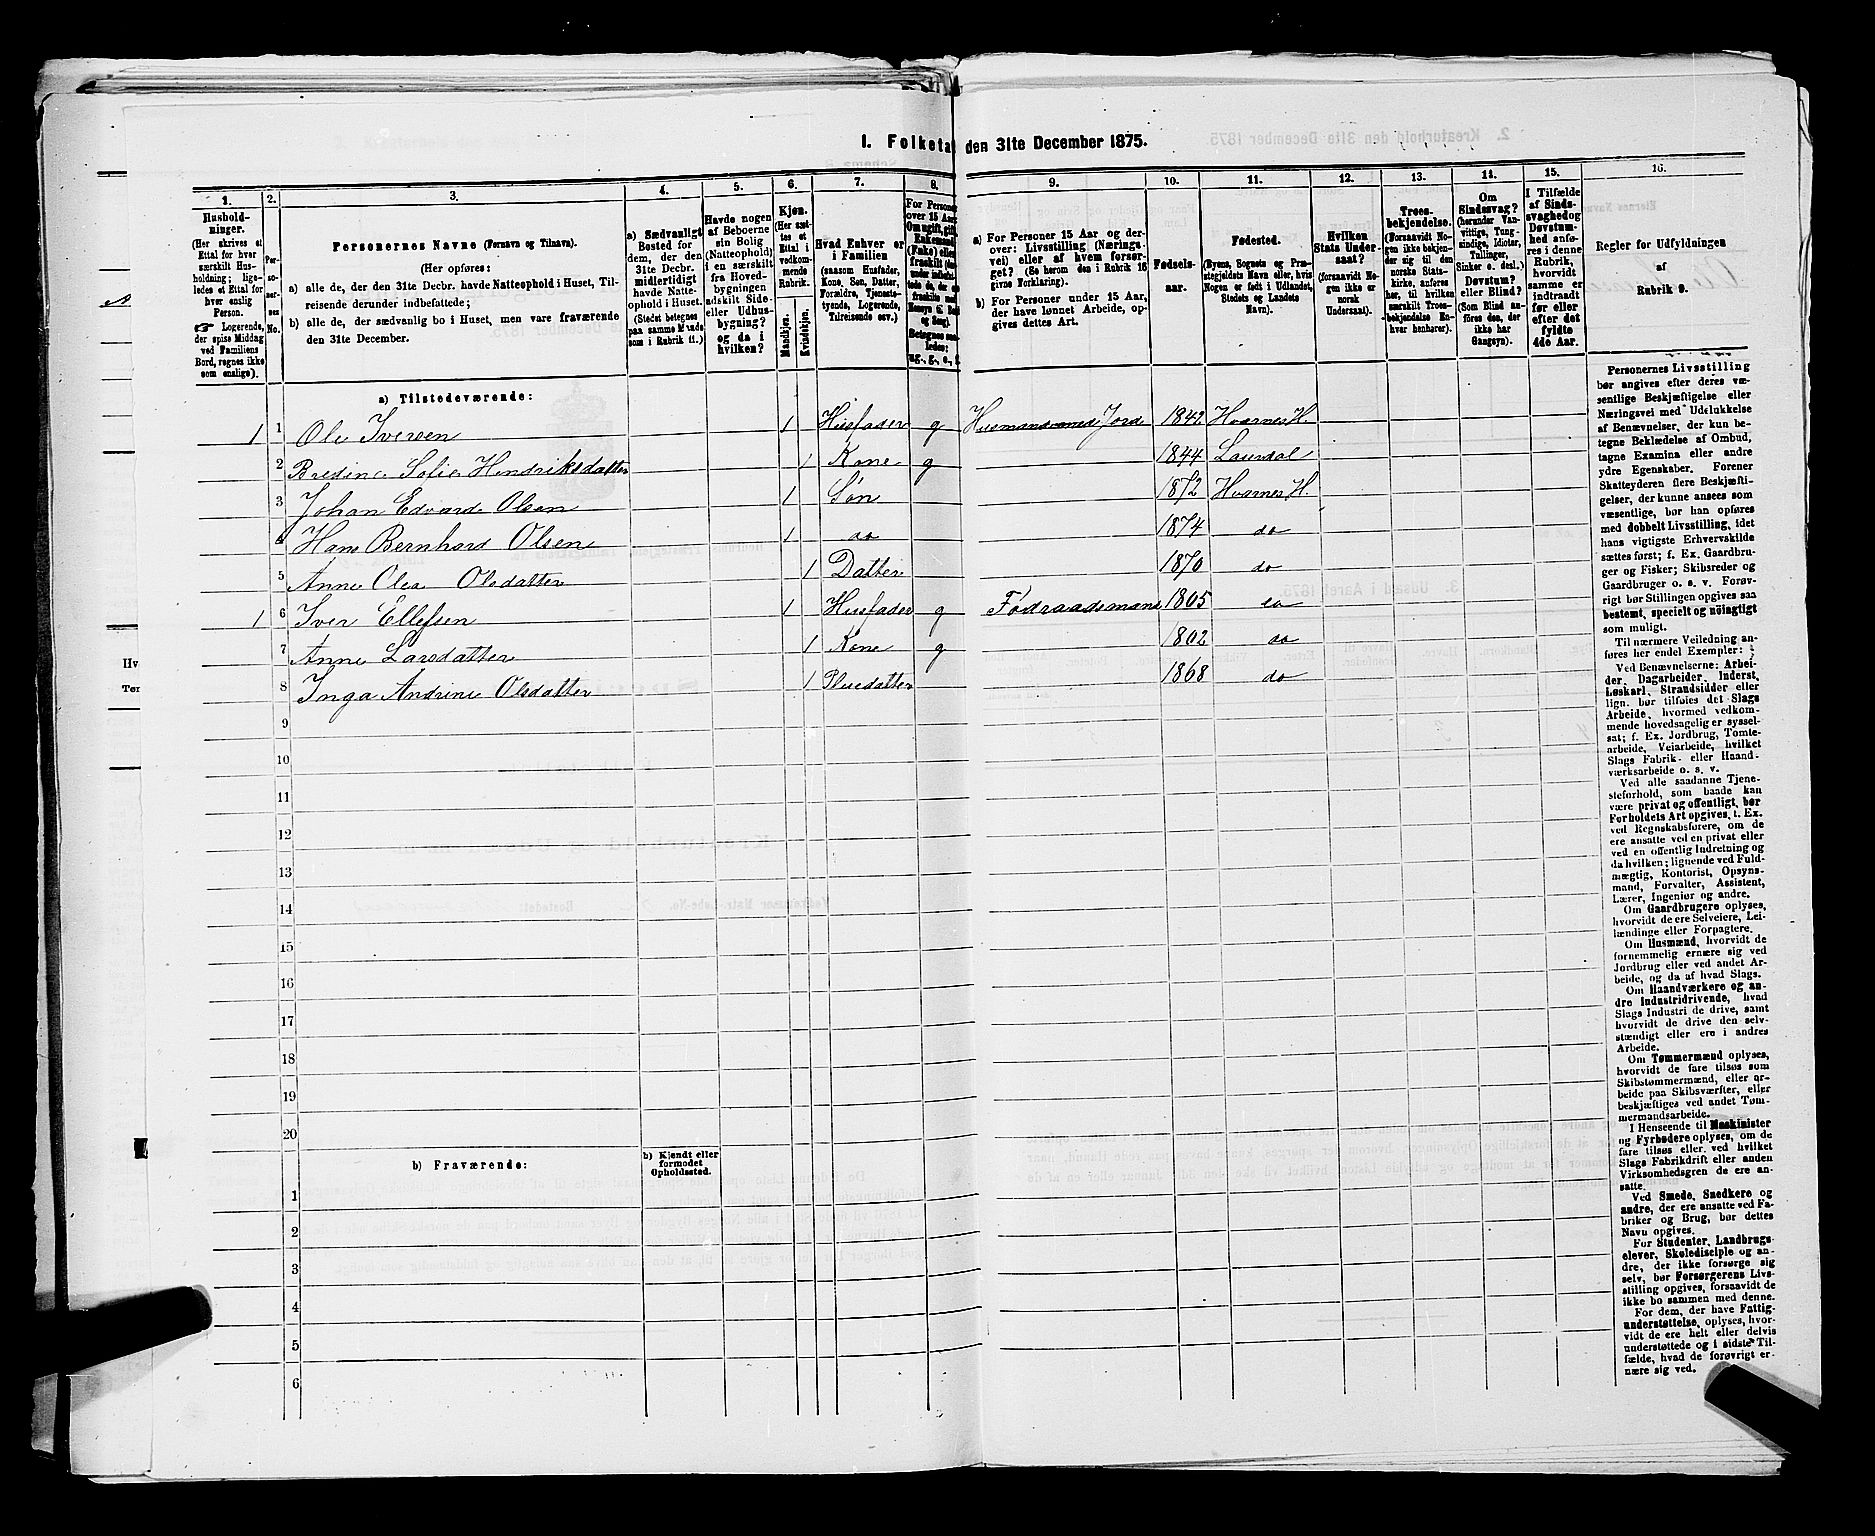 1. Folketæ den 31te December 1875.
1. 2. 3. 4. 5. 6. 7. 8. 9. 10. 11. 12. 13. 14. 15. 16.
Husholdninger.
(Her skrives et Ettal for hver særskilt Husholdning; ligeledes et Ettal for hver enslig Person.
Logerende, der spise Middag ved Familiens Bord, regnes ikke som enslige).
Personernes No.
Personernes Navne (Fornavn og Tilnavn).
(Her opføres:
a) alle de, der den 31te Decbr. havde Natteophold i Huset, Tilreisende derunder indbefattede;
b) alle de, der sædvanlig bo i Huset, men vare fraværende den 31te December.
a) Sædvanligt Bosted for dem, der den 31te Decbr. midlertidigt havde Natteophold i Huset. (Stedet betegnes paa samme Maade som i Rubrik 11.)
Havde nogen af Beboerne sin Bolig (Natteophold) i en særskilt fra Hovedbygningen adskilt Side- eller Udhusbygning? og da i hvilken?
Kjøn. (Her sættes et Ettal i vedkommende Rubrik.
Mandkjøn. Kvindekjøn.
Hvad Enhver er i Familien
(saasom Husfader, Kone, Søn, Datter, Forældre, Tjenestetyende, Logerende, Tilreisende osv.)
a) For Personer 15 Aar og derover: Livsstilling (Næringsvei) eller af hvem forsørget? (Se herom den i Rubrik 16 givne Forklaring).
b) For Personer under 15 Aar, der have lønnet Arbeide, opgives dettes Art.
Fødselsaar.
Fødested.
(Byens, Sognets og Præstegjeldets Navn eller, hvis Nogen er født i Udlandet, Stedets og Landets Navn).
Hvilken Stats Undersaat?
(forsaavidt Nogen ikke er norsk Undersaat).
Troesbekjendelse.
(Forsaavidt Nogen ikke bekjender sig til den norske Statskirke, anføres her, til hvilken særskilt Troesbekjendelse Enhver henhører).
Om Sindssvag?
(herunder Vanvittige, Tungsindige, Idioter, Tullinger, Sinker o. desl.)
Døvstum? eller Blind?
(Som Blind anføres den, der ikke har Gangsyn).
I Tilfælde af Sindssvaghed og Døvstumhed anføres i denne Rubrik, hvorvidt samme er indtraadt før eller efter det fyldte 4de Aar.
Regler for Udfyldningen af Rubrik 9.
a) Tilstedeværende:
1 1 Ole Iversen 1 Husfader g Husmand med Jord 1842 Hvarnes H.
2 Bredine Sofie Hendriksdatter 1 Kone g 1844 Laurdal
3 Johan Edvard Olsen 1 Søn 1872 Hvarnes H.
4 Hans Bernhard Olsen 1 do 1874 do
5 Anne Olea Olsdatter 1 Datter 1870 do
1 6 Iver Ellefsen 1 Husfader g Fødraadsmand 1805 do
7 Anne Larsdatter 1 Kone g 1802 do
8 Inga Andrine Olsdatter 1 Pleiedatter 1868 do
9
10
11
12
13
14
15
16
17
18
19
20
b) Fraværende: b) Kjendt eller formodet Opholdssted.
1
2
3
4
5
6
Personernes Livsstilling
bør angives efter deres væ-
sentlige Beskjæftigelse eller
Næringsvei med Udelukkelse
af Benævnelser, der kun be-
tegne Beklædelse af Ombud,
tagne Examina eller andre
ydre Egenskaber. Forener
Skatteyderen flere Beskjæfti-
gelser, der kunne ansees som
væsentlige, bør han opføres
med dobbelt Livsstilling, idet
hans vigtigste Erhvervskilde
sættes først; f. Ex. Gaardbru-
ger og Fisker; Skibsreder og
Gaardbruger o. s. v. Forøv-
rigt bør Stillingen opgives saa
bestemt, specielt og nöiagtigt
som muligt.
Til nærmere Veiledning an-
føres her endel Exempler:
Ved Benævnelserne: Arbei-
der, Dagarbeider, Inderst,
Løskarl, Strandsidder eller
lign. bør tilføies det Slags
Arbeide, hvormed vedkom-
mende hovedsagelig er syssel-
sat; f. Ex. Jordbrug, Tomte-
arbeide, Veiarbeide, hvilket
Slags Fabrik- eller Haand-
værksarbeide o. s. v.
Ved alle saadanne Tjene-
steforhold, som baade kan
være privat og offentligt, bør
Forholdets Art opgives, t. Ex.
ved Regnskabsførere, om de
ere ansatte ved en privat eller
ved en offentlig Indretning og
da hvilken; lignende ved Fuld-
mægtig, Kontorist, Opsyns-
mand, Forvalter, Assistent,
Lærer, Ingeniør og andre.
Om Gaardbrugere oplyses,
hvorvidt de ere Selveiere, Lei-
lændinge eller Forpagtere.
Om Husmænd, hvorvidt de
fornemmelig ernære sig ved
Jordbrug eller ved andet Ar-
beide, og da af hvad Slags.
Om Haandværkere og an-
dre Industridrivende, hvad
Slags Industri de drive, samt
hvorvidt de drive den selv-
stændigt eller ere i andres
Arbeide.
Om Tømmermænd oplyses,
hvorvidt de fare tilsøs som
Skibstømmermænd, eller ar-
beide paa Skibsværfter, eller
beskjæftiges ved andet Tøm-
mermandsarbeide.
I Henseende til Maskinister
og Fyrbødere oplyses, om de
fare tilsøs eller ved hvilket
Slags Fabrikdrift eller anden
Virksomhedsgren de ere an-
satte.
Ved Smede, Snedkere og
andre, der ere ansatte ved Fa-
briker og Brug, bør dettes
Navn opgives.
For Studenter, Landbrugs-
elever, Skoledisciple og an-
dre, der ikke forsørge sig
selv, bør Forsørgerens Livs-
stilling opgives, forsaavidt de
ikke bo sammen med denne.
For dem, der have Fattig-
understøttelse, oplyses, hvor-
vidt de ere helt eller delvis
understøttede og i sidste Til-
fælde, hvad de forøvrigt er-
nære sig ved.